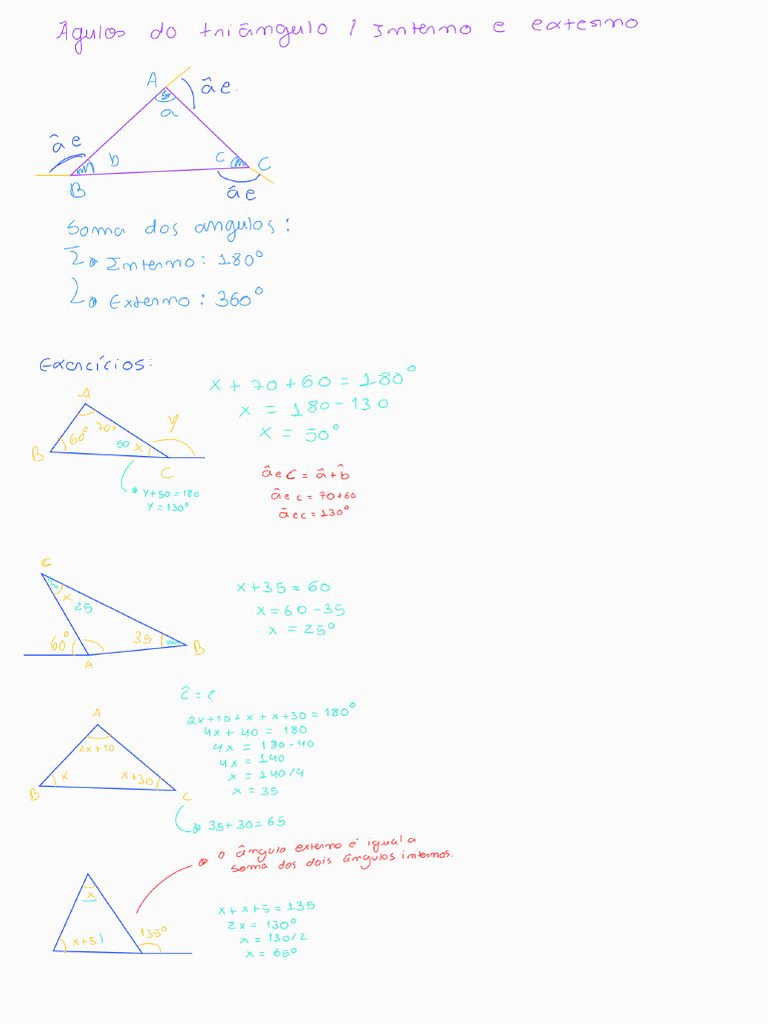 Âgulos do triângulo / Interno e externo
A
âe.
a
âe
b
c
C
B
âe
Soma dos angulos:
Interno: 180°
Externo: 360°
Exercícios:
x + 70 + 60 = 180°
x = 180 - 130
x = 50°
A
70°
60°
50
x
y
B
C
y + 50 = 180
y = 130°
âec = â + b̂
âec = 70+60
âec = 130°
C
x
25
60°
35
A
B
x + 35 = 60
x = 60 - 35
x = 25°
ĉ = ?
2x+10 + x + x+30 = 180°
4x + 40 = 180
4x = 180 - 40
4x = 140
x = 140/4
x = 35
A
2x+10
x
x+30
B
C
35+30=65
o ângulo externo é igual a
soma dos dois ângulos internos.
x
x+5
135°
x + x+5 = 135
2x = 130°
x = 130/2
x = 65°